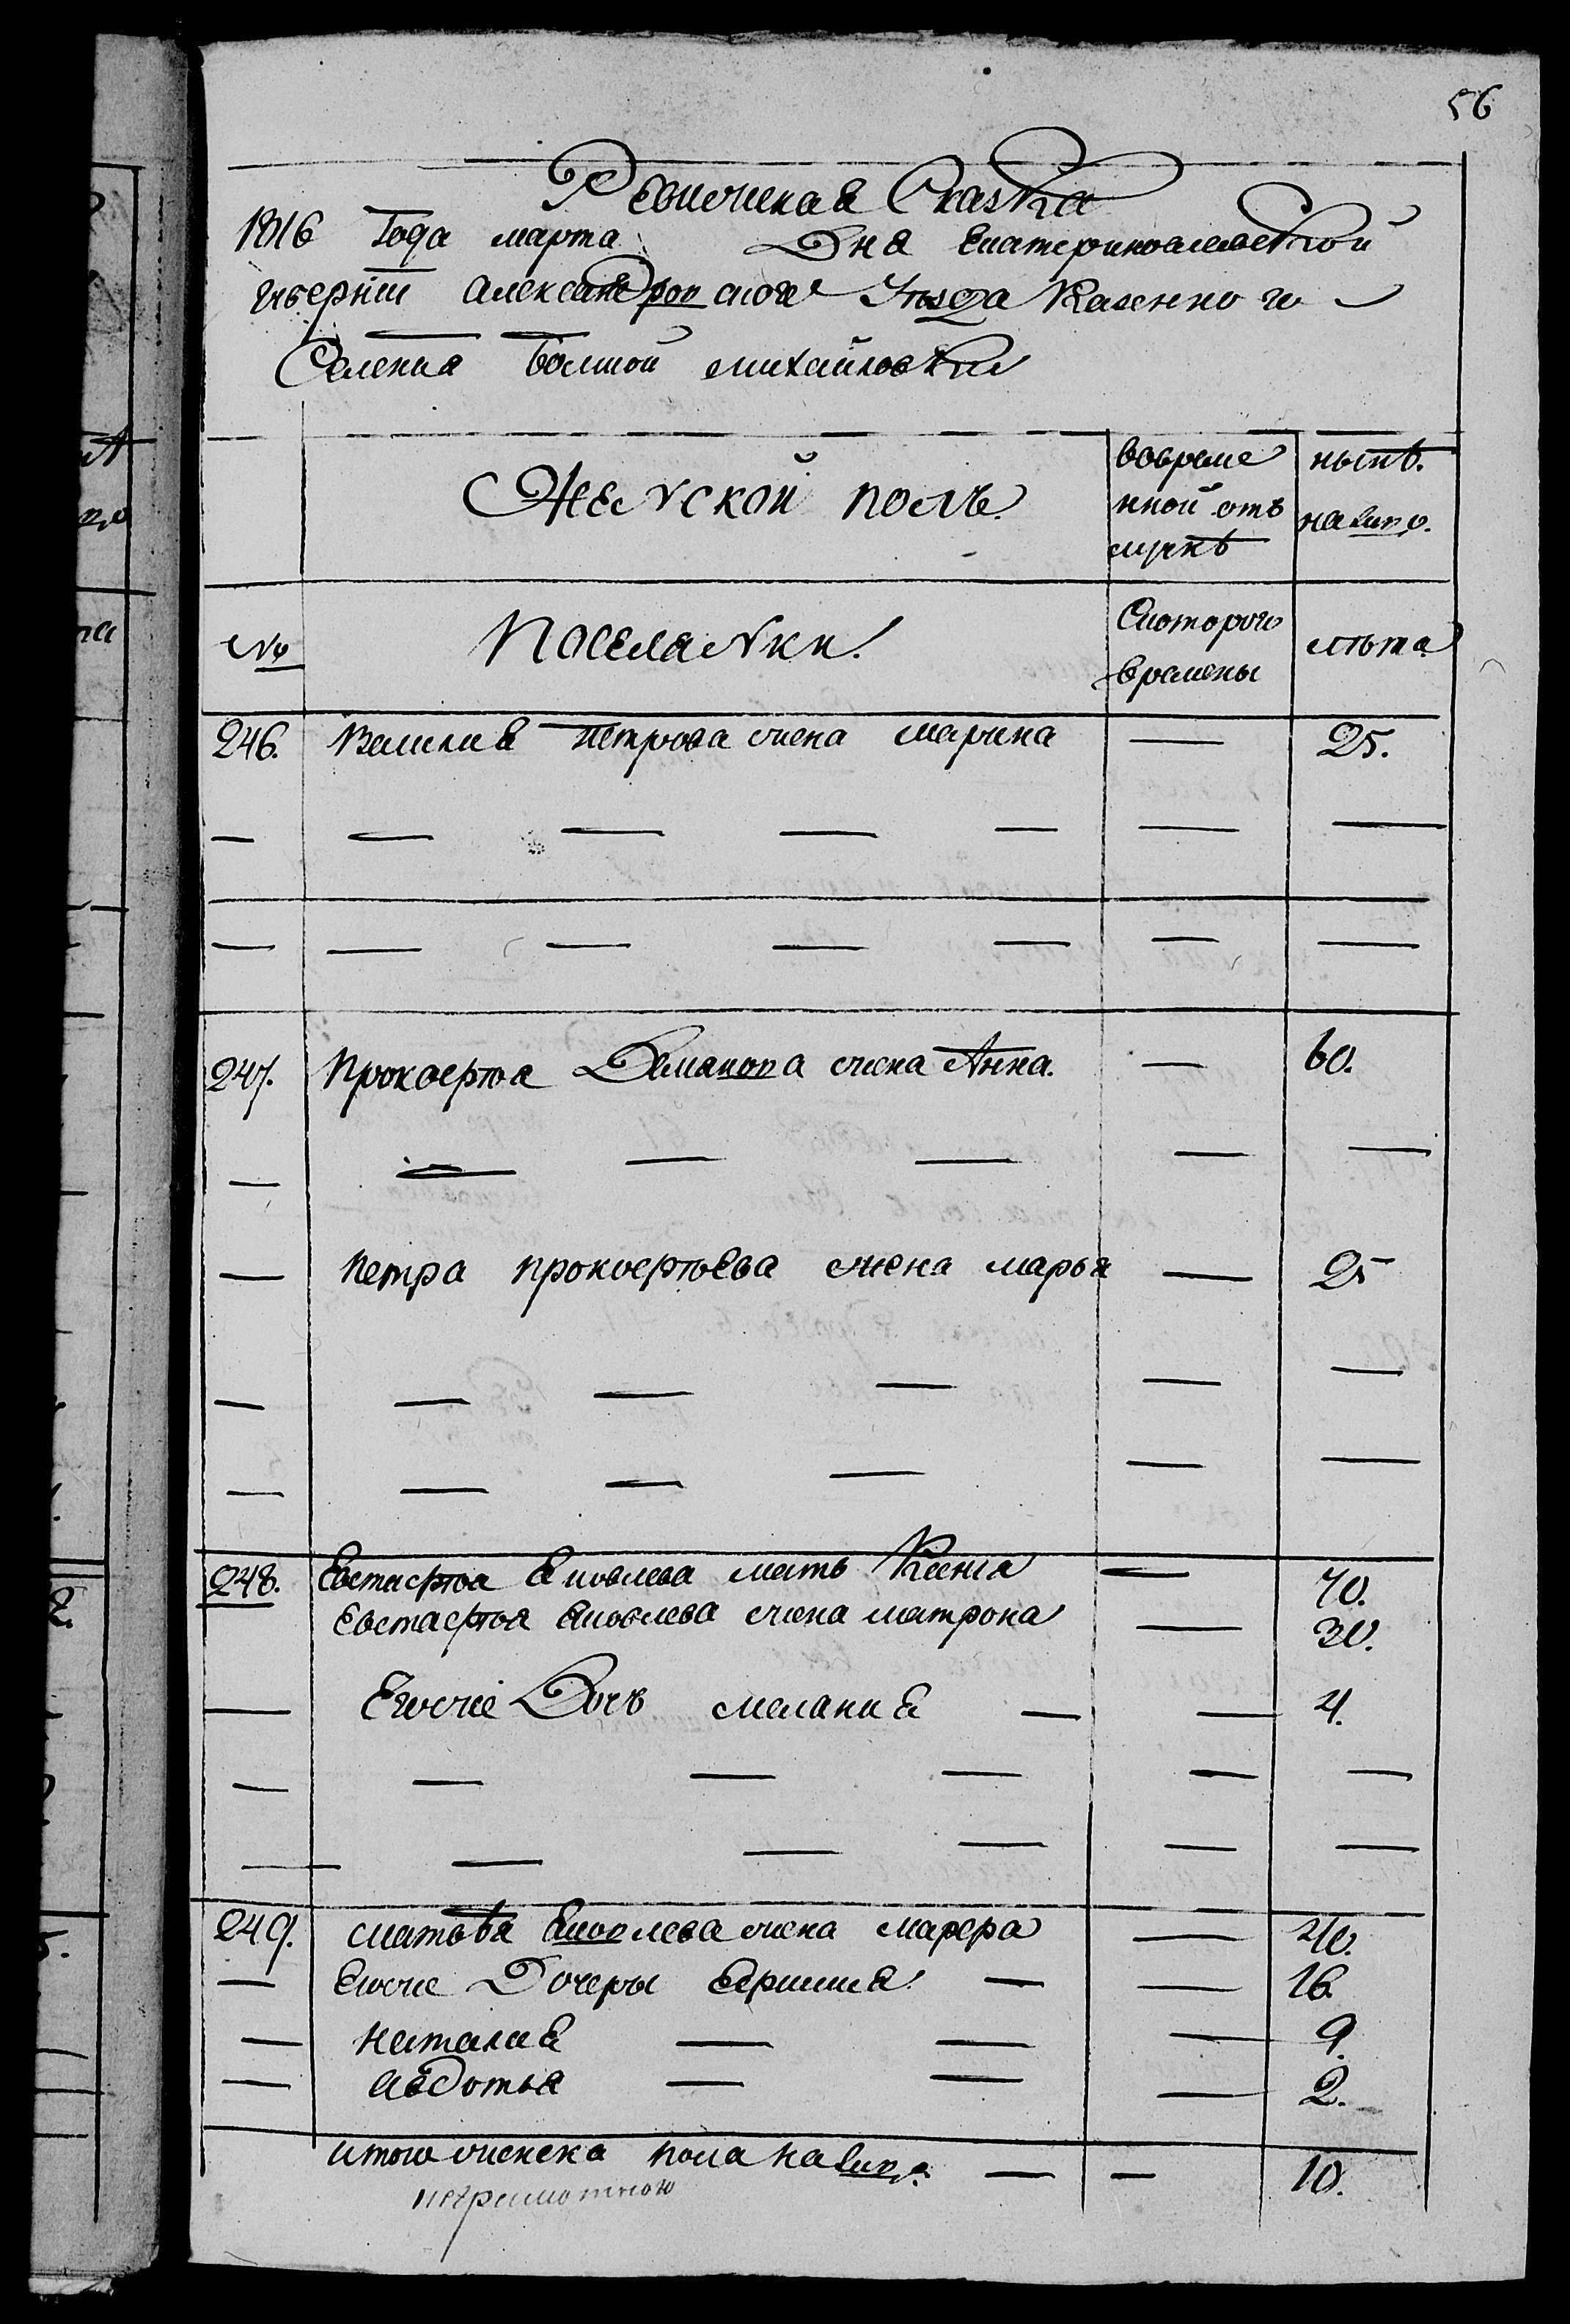 56
Ревижская Сказка
1816 Года марта Дня Екатеринославской
губернїи Александровскаго Уѣзда Казенного
Селения Болшой михайловки
Женской полъ.
вовреме
нной отъ
лучкѣ
нынѣ.
налицо.
№
Поселянки.
Скоторого
времены
лѣта
246. Василия Петрова жена марина — 25.
— — — — — — —
— — — — — — —
247. Прокофья Демянова жена Анна. — 60.
— — — — — —
— Петра прокофьева жена марья — 25
— — — — — —
— — — — — —
248. Евстафья Яковлева мать Ксения — 70.
Евстафья Яковлева жена матрона — 30.
— Егоже Дочъ мелания — — 4.
— — — — — —
— — — — — —
249. матвѣя Яковлева жена марфа — 40.
— Егоже Дочеры — — 16.
— Наталия — — — 9.
— Авдотья — — — 2.
итого женска пола налицо. — — 10.